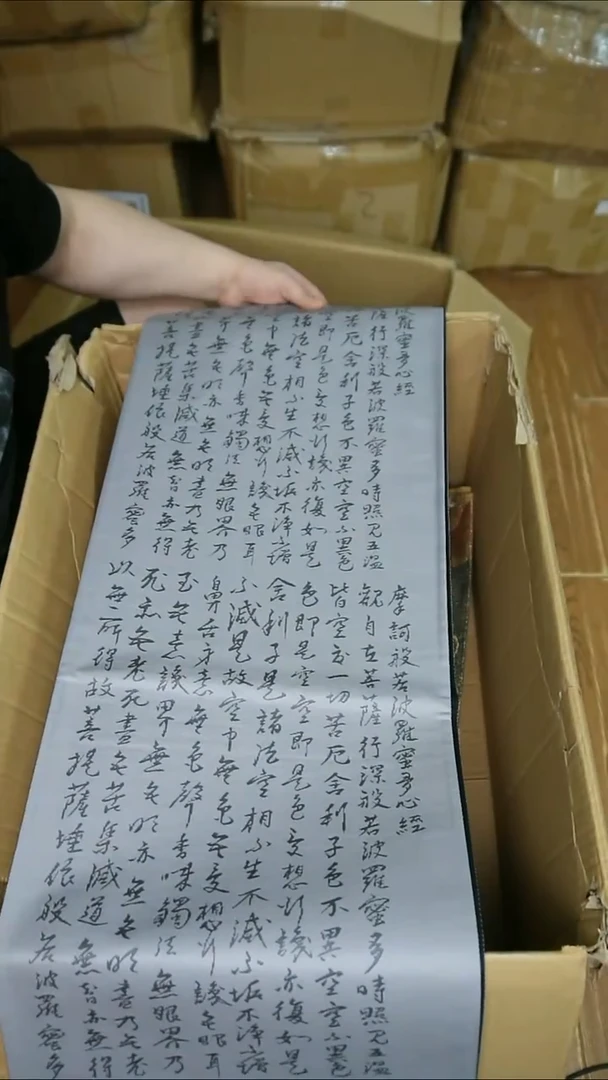 羅蜜多心經
行深般若波羅蜜多時照見五蘊
苦厄舍利子色不異空空不異色
即是色受想行識亦復如是
諸法空相不生不滅不垢不淨
中無色無受想行識無眼耳
無色聲香味觸法無眼界乃
界無無明亦無無明盡乃至老
盡無苦集滅道無智亦無得
菩提薩埵依般若波羅蜜多
摩訶般若波羅蜜多心經
觀自在菩薩行深般若波羅蜜多時照見五蘊
皆空度一切苦厄舍利子色不異空空不異色
色即是空空即是色受想行識亦復如是
舍利子是諸法空相不生不滅不垢不淨
不減是故空中無色無受想行識無眼耳
鼻舌身意無色聲香味觸法無眼界乃
至無意識界無無明亦無無明盡乃至老
死亦無老死盡無苦集滅道無智亦無得
以無所得故菩提薩埵依般若波羅蜜多
2